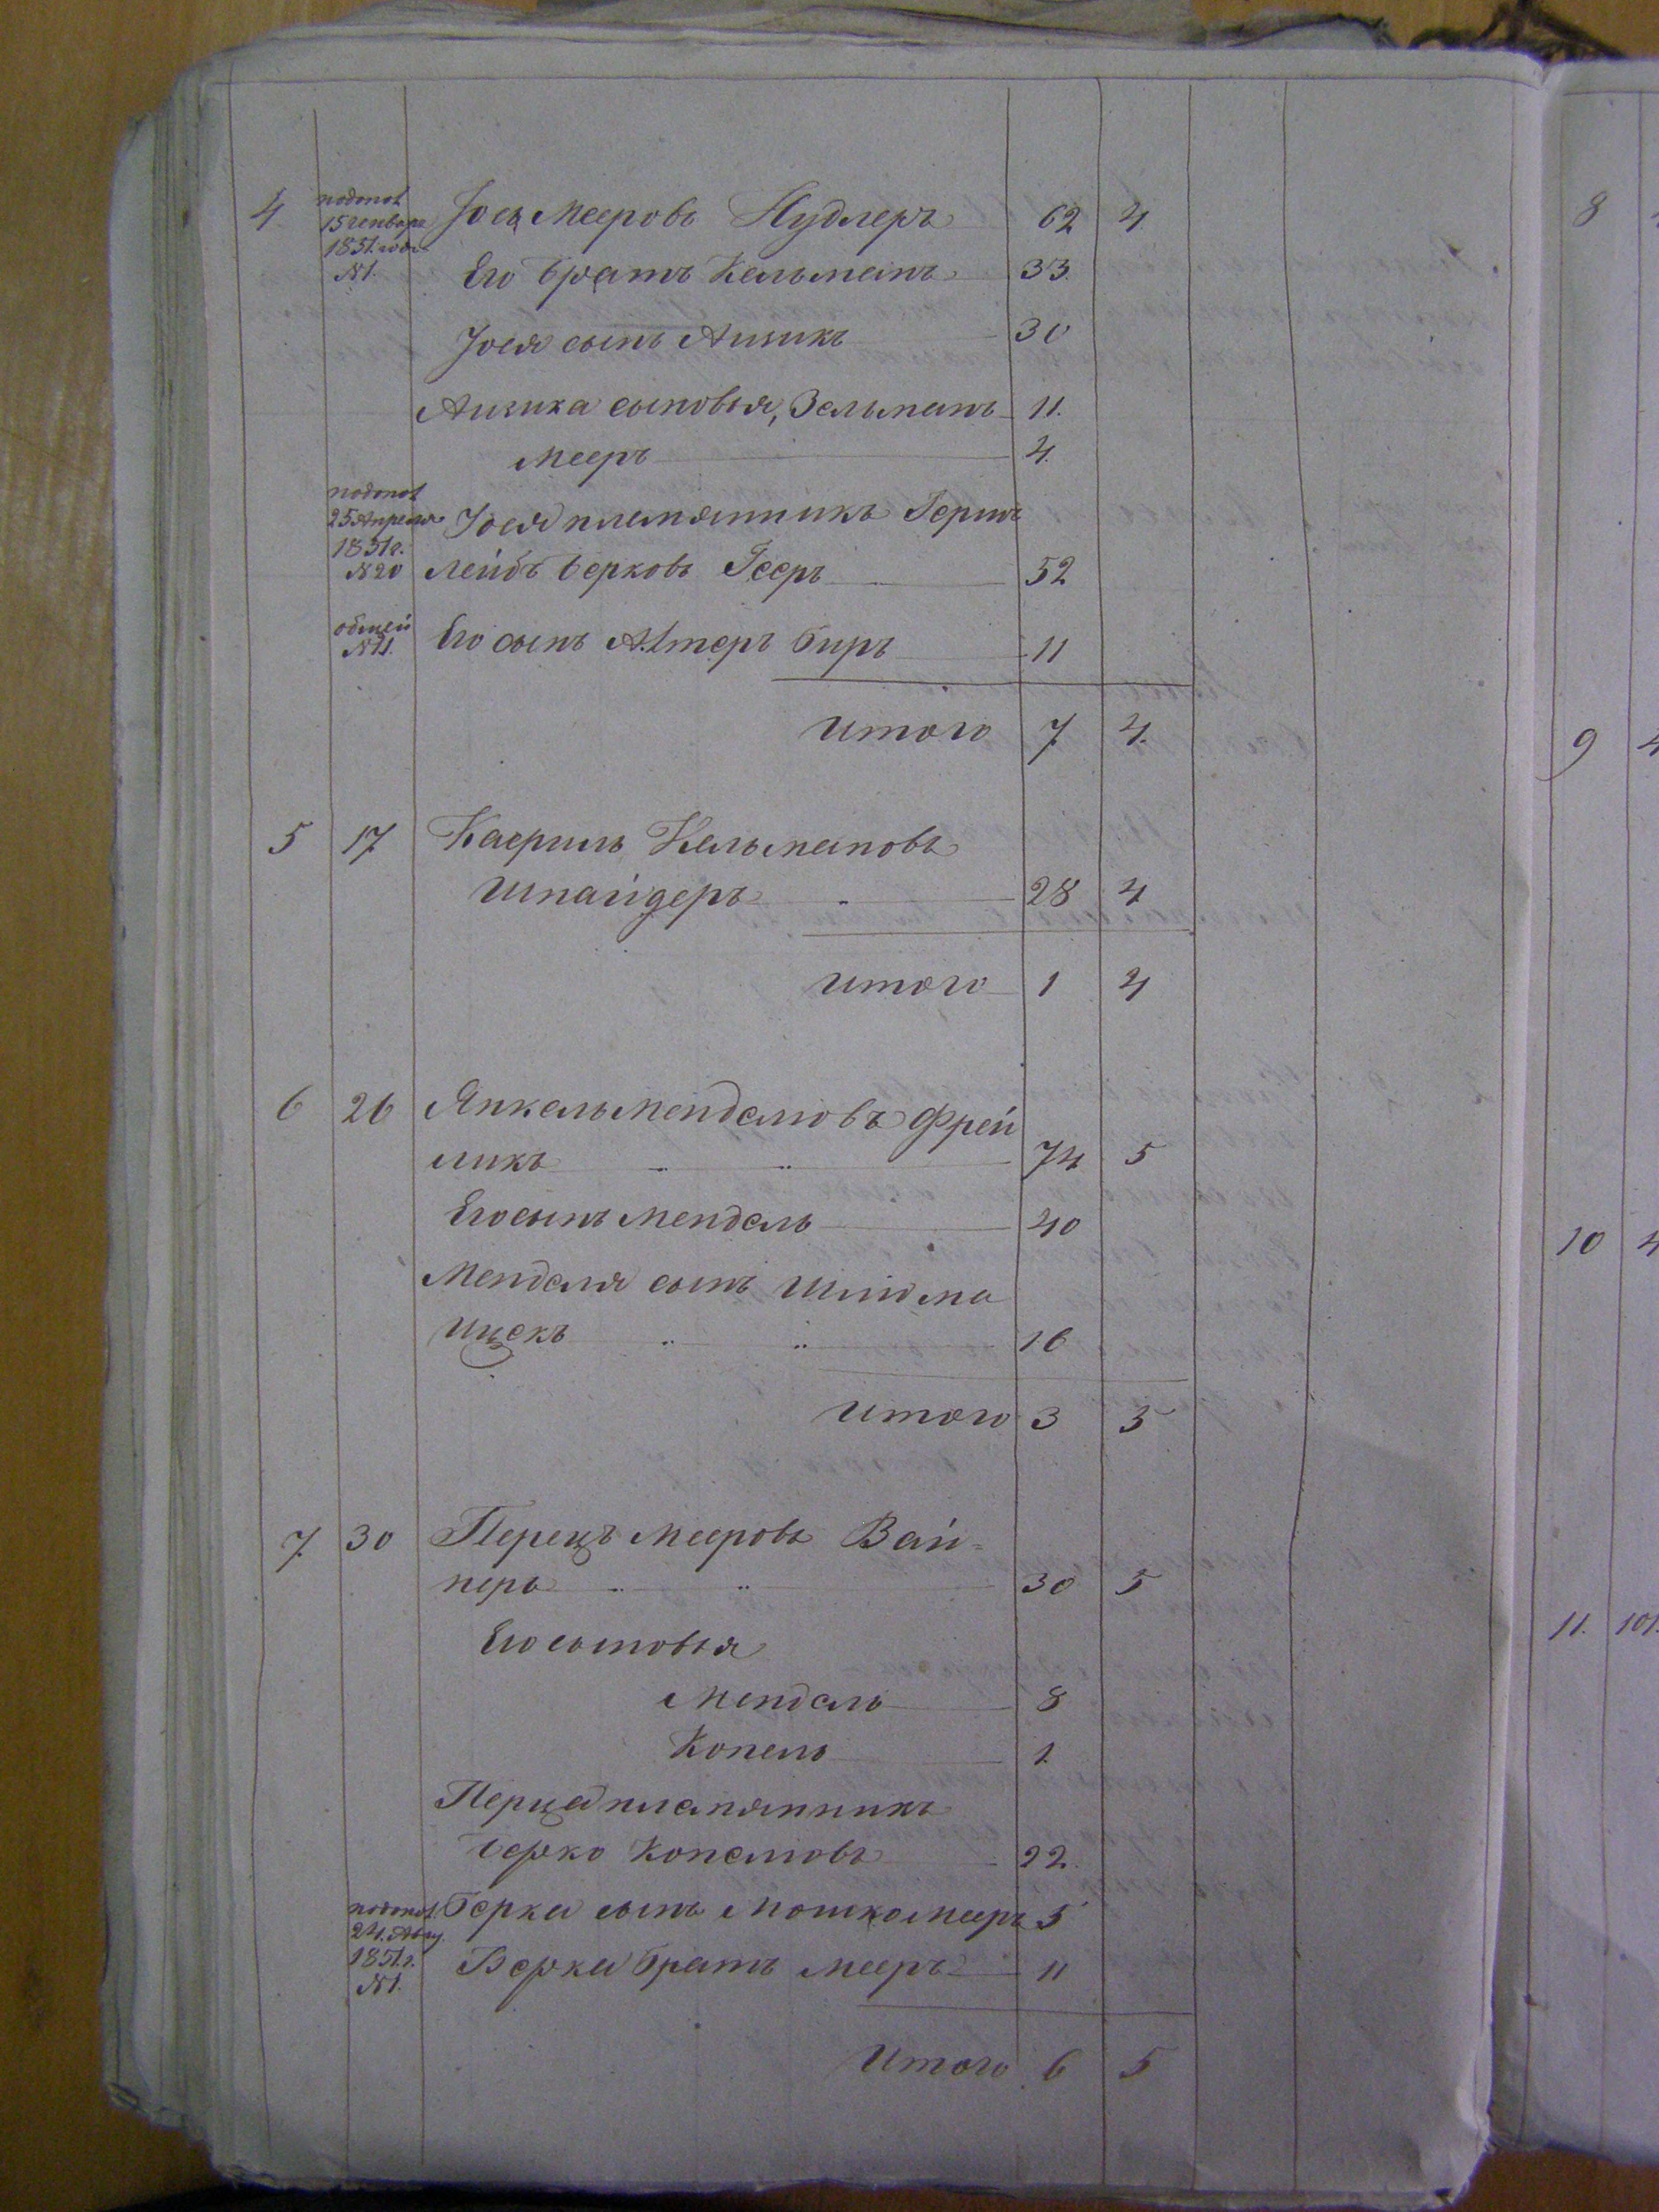 4 подопол 15 генваря 1851 года №1. Іось Мееровъ Нудлеръ 62 4
Его братъ Кельманъ 33.
Іося сынъ Аизикъ 30
Аизика сыновья, Зельманъ 11.
Мееръ 4.
подопол 25 Апреля 1851 г. №20 Іося племянникъ Герш
Лейбъ Берковъ Гееръ 52
общей №11. Его сынъ Алтеръ Биръ 11
Итого 7 4.
5 17 Касриль Кельмановъ
Шнайдеръ 28 4
Итого 1 4
6 26 Янкель Менделювъ Фрей
ликъ 74 5
Его сынъ Мендель 40
Менделя сынъ Шлюма
Ицекъ 16
Итого 3 5
7. 30 Перецъ Мееровъ Вай=
неръ 30 5
Его сыновья
Мендель 8
Копель 1.
Перца племянникъ
Берко Копелювъ 22.
подопол. 24. Авгу. 1851 г. №1. Берка сынъ Мошко Мееръ 5
Берка братъ Мееръ 11
Итого 6 5
8
9 4
10 4
11. 101.